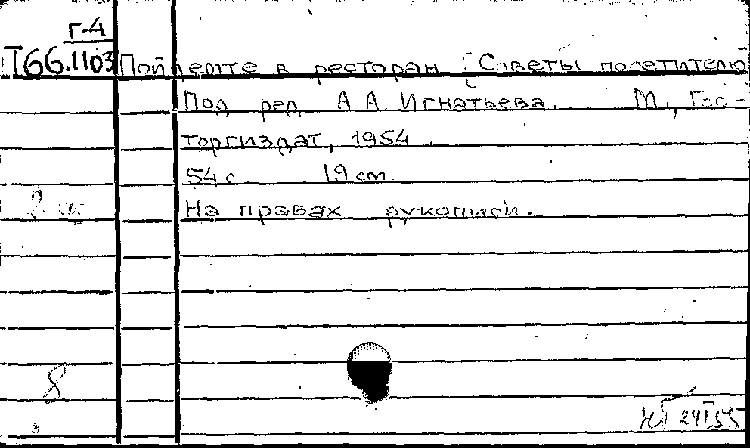 Г-4
Т66.1103 Пойдемте в ресторан [Советы посетителю
Под ред. А А Игнатьева. М., Гос-
торгиздат, 1954.
54 с 19 см.
2 
На правах рукописи.
8
24 55